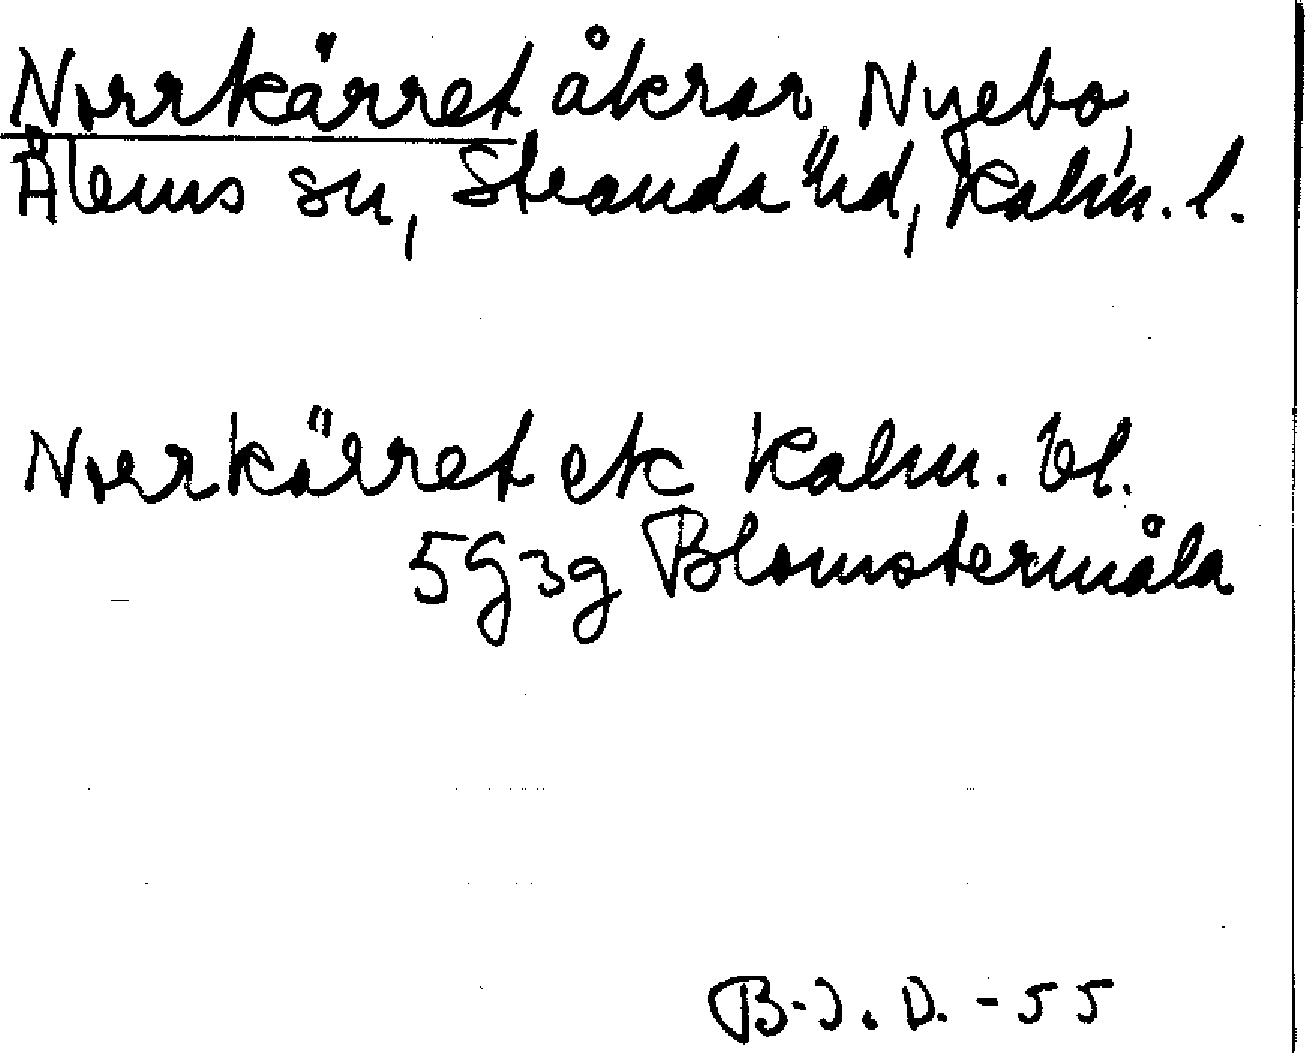 Norrkärret åkrar, Nyebo,
Ålems sn, Stranda hd, Kalm. l.
Norrkärret ek Kalm. bl.
5G3g Blomstermåla
B-J. D. -55